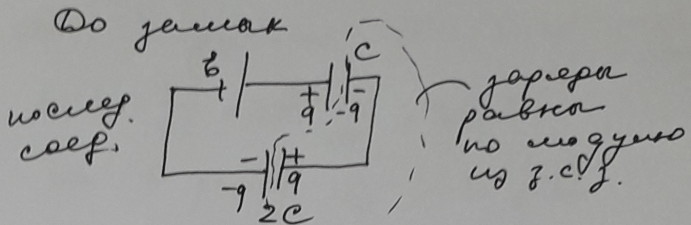 До замык
послед.
соед.
ℰ
C
+ -
q -q
- +
-q q
2C
заряды
равны
по модулю
из з.с.з.